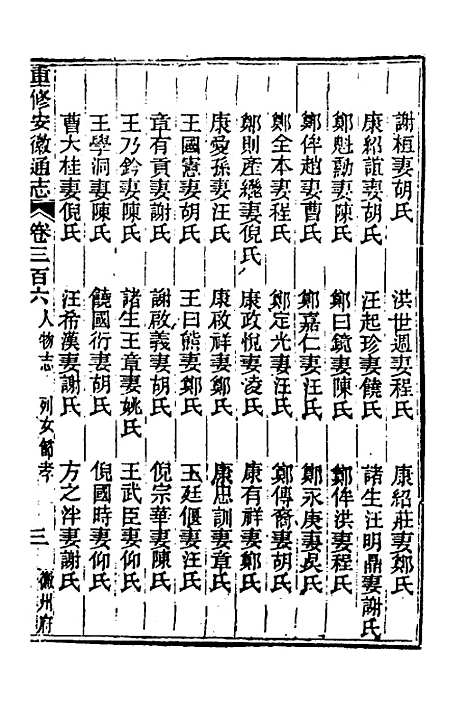 謝桓妻胡氏　洪世週妻程氏　康紹莊妻鄭氏
康紹誼妻胡氏　汪起珍妻饒氏　諸生汪明鼎妻謝氏
鄭魁勳妻陳氏　鄭曰鏡妻陳氏　鄭侔洪妻程氏
鄭侔趙妻曹氏　鄭嘉仁妻汪氏　鄭永庚妻吳氏
鄭全本妻程氏　鄭定光妻汪氏　鄭傳裔妻胡氏
鄭則產繼妻倪氏　康政悅妻凌氏　康有祥妻鄭氏
康受孫妻汪氏　康啟祥妻鄭氏　康思訓妻章氏
王國憲妻胡氏　王曰熊妻鄭氏　王廷偃妻汪氏
章有貢妻謝氏　謝啟義妻胡氏　倪宗華妻陳氏
王乃鈐妻陳氏　諸生王章妻姚氏　王武臣妻仰氏
王學洞妻陳氏　饒國衍妻胡氏　倪國時妻仰氏
曹大桂妻倪氏　汪希漢妻謝氏　方之泮妻謝氏
重修安徽通志　卷三百六　人物志　列女節孝　三　徽州府